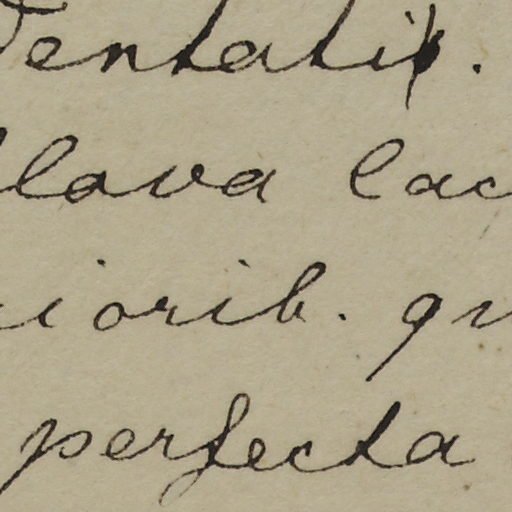 Dentatis.
flava lac
iorib. qu
perfecta